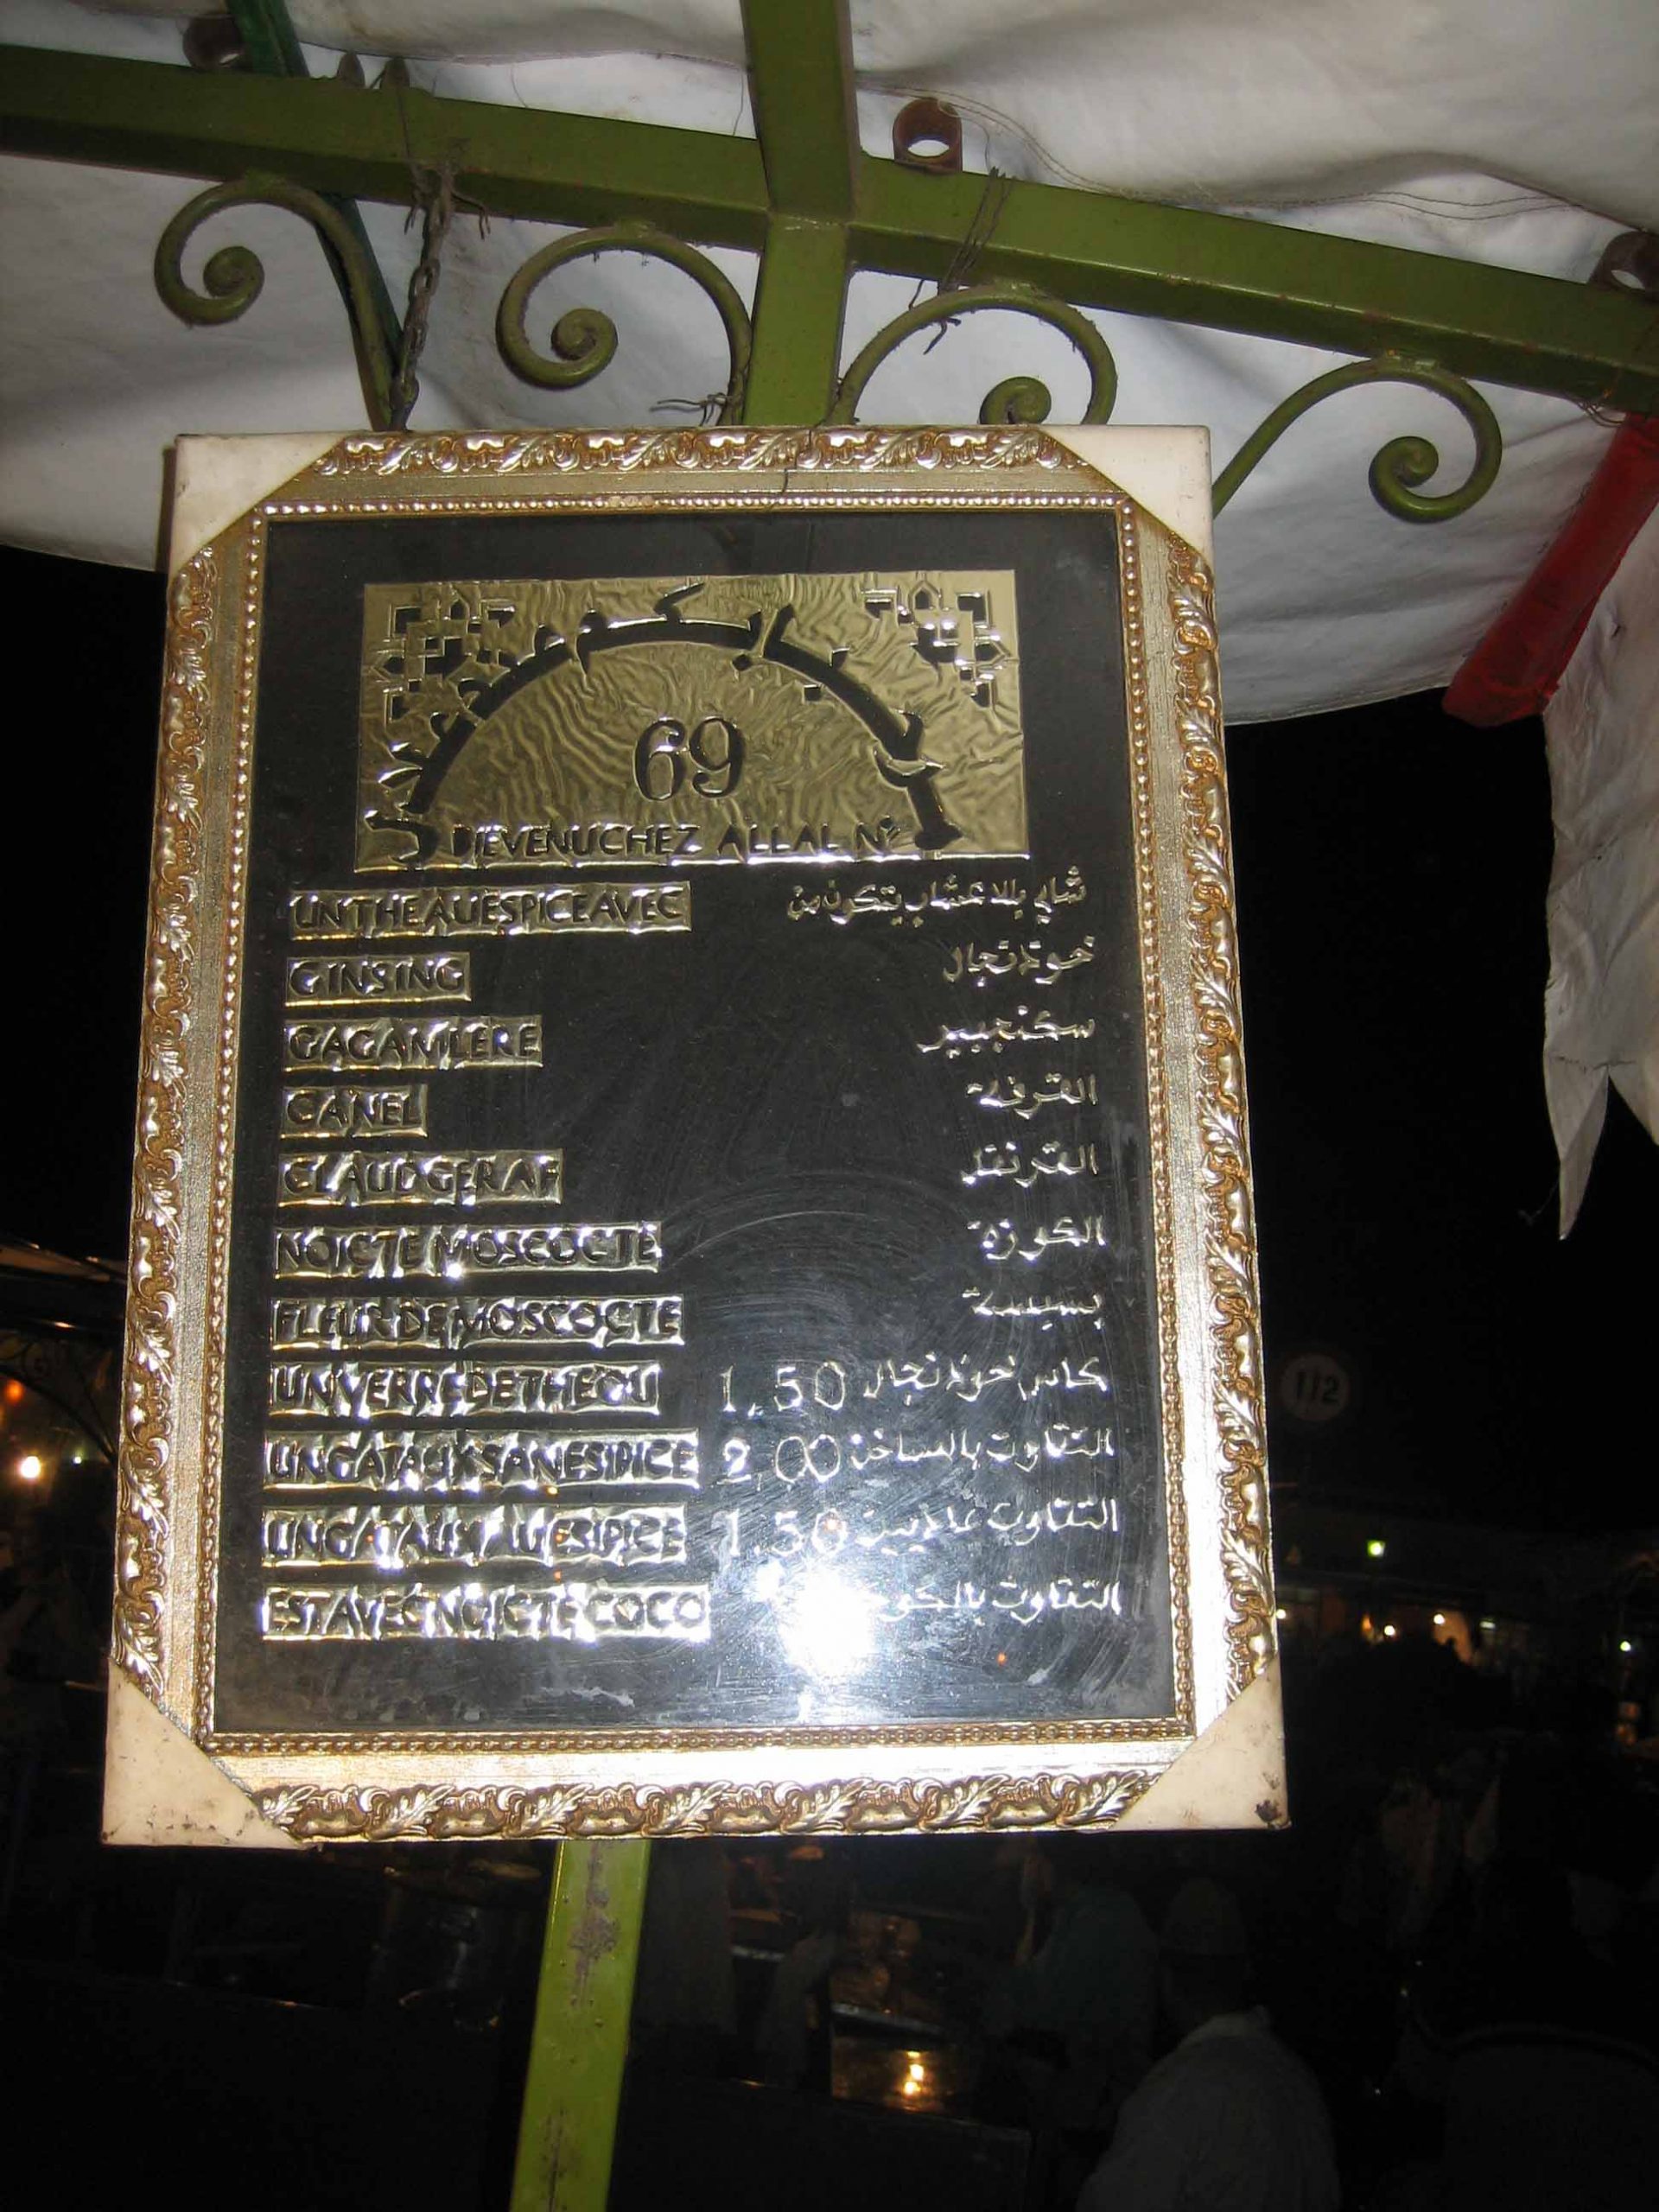 مرحبا بكم عند علال
69
DIEVENUCHEZ ALLAL N°
UNTHE AUESPICEAVEC شاي بالاعشاب يتكون من
GINSING خودنجال
GAGAMLERE سكنجبير
CANEL القرفة
CLAUDGERAF القرنفل
NOICTE MOSCOCTE الكوزة
FLEURDEMOSCOCTE بسيبسة
UNVERREDETHEOU 1,50 كاس خودنجال
UNGATAUXSANESIPICE 2,00 التقاوت بالساخن
UNGATAUX AUESIPICE 1.50 التقاوت عاديين
ESTAVECNOICTECOCO التقاوت
1/2